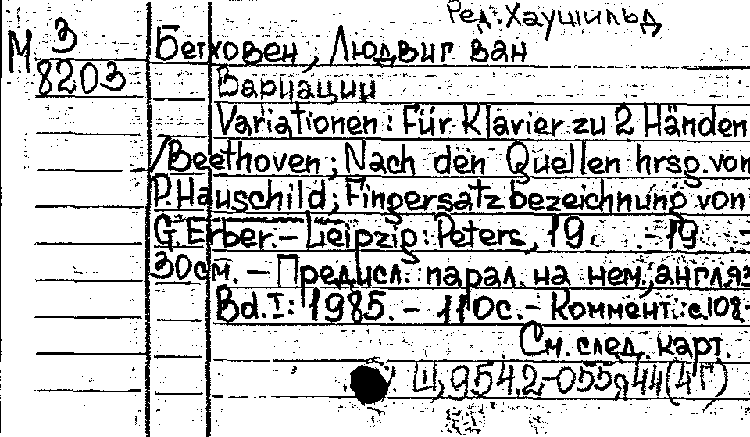 Ред: Хаушильд
М 3
8203
Бетховен, Людвиг ван
Вариации
Variationen: Für Klavier zu 2 Händen
/Beethoven; Nach den Quellen hrsg. von
P. Hauschild; Fingersatzbezeichnung von
G. Erber. – Leipzig: Peters, 19 . -19 . -
30см. – Предисл. парал. на нем., англ яз
Bd.I: 1985. – 110с. – Коммент.: с.108-
См. след. карт.